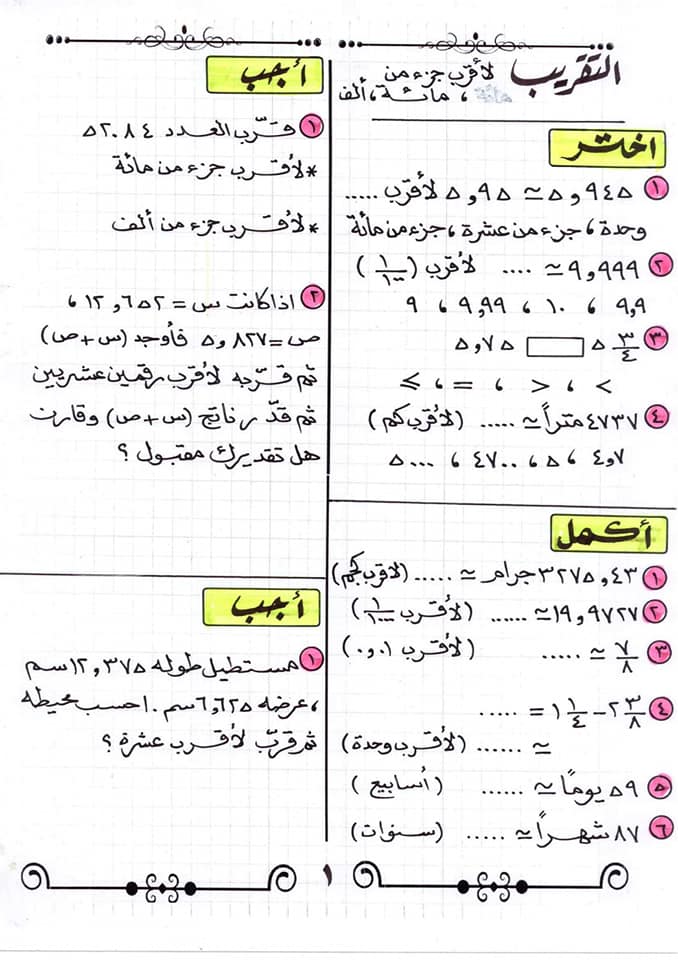 التقريب لأقرب جزء من
مائة ، مائة ، ألف
اختر
١ ٥,٩٤٥ ≃ ٥,٩٥ لأقرب .....
وحدة ، جزء من عشرة ، جزء من مائة
٢ ٩,٩٩٩ ≃ .... لأقرب ( ١/١٠٠ )
٩,٩ ، ١٠ ، ٩,٩٩ ، ٩
٣ ٥ ٣/٤ □ ٥,٧٥
< ، > ، = ، ≥
٤ ٤٧٣٧ متراً ≃ ..... (لأقرب كم)
٤,٧ ، ٥ ، ٤٧٠٠ ، ٥٠٠٠
أكمل
١ ٣٢٧٥,٤٣ جرام ≃ ..... (لأقرب كجم)
٢ ١٩,٩٧٢٧ ≃ ...... (لأقرب ١/١٠٠)
٣ ٧/٨ ≃ ..... (لأقرب ٠,٠١)
٤ ٢ ٣/٨ − ١ ١/٤ = .....
≃ ...... (لأقرب وحدة)
٥ ٥٩ يومًا ≃ ...... ( أسابيع )
٦ ٨٧ شهراً ≃ ..... (سنوات)
أجب
١ قرّب العدد ٥٢٠٨٤
* لأقرب جزء من مائة
* لأقرب جزء من ألف
٢ اذا كانت س = ١٢,٦٥٢ ،
ص = ٥,٨٢٧ فأوجد (س + ص)
ثم قربه لأقرب رقمين عشريين
ثم قدّر ناتج (س + ص) وقارن
هل تقديرك مقبول ؟
أجب
١ مستطيل طوله ١٢,٣٧٥ سم
، عرضه ٦,٦٢٥ سم . احسب محيطه
ثم قرّب لأقرب عشرة ؟
١